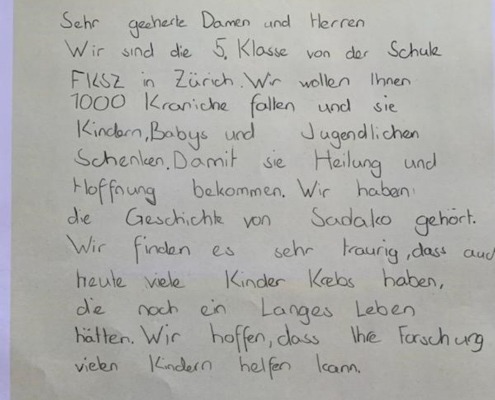 Sehr geeherte Damen und Herren
Wir sind die 5. Klasse von der Schule
FKSZ in Zürich. Wir wollen Ihnen
1000 Kraniche falten und sie
Kindern, Babys und Jugendlichen
Schenken. Damit sie Heilung und
Hoffnung bekommen. Wir haben
die Geschichte von Sadako gehört.
Wir finden es sehr traurig, dass auch
heute viele Kinder Krebs haben,
die noch ein Langes Leben
hätten. Wir hoffen, dass Ihre Forschung
vielen Kindern helfen kann.